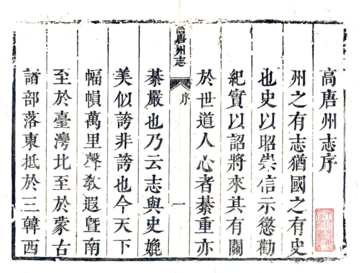 高唐州志序
州之有志猶國之有史
也史以昭崇信示懲勸
紀實以詔將來其有關
於世道人心者綦重亦
高唐州志
序
一
綦嚴也乃云志與史媲
美似謗非謗也今天下
幅幀萬里聲敎遐曁南
至於臺灣北至於蒙古
諸部落東抵於三韓西